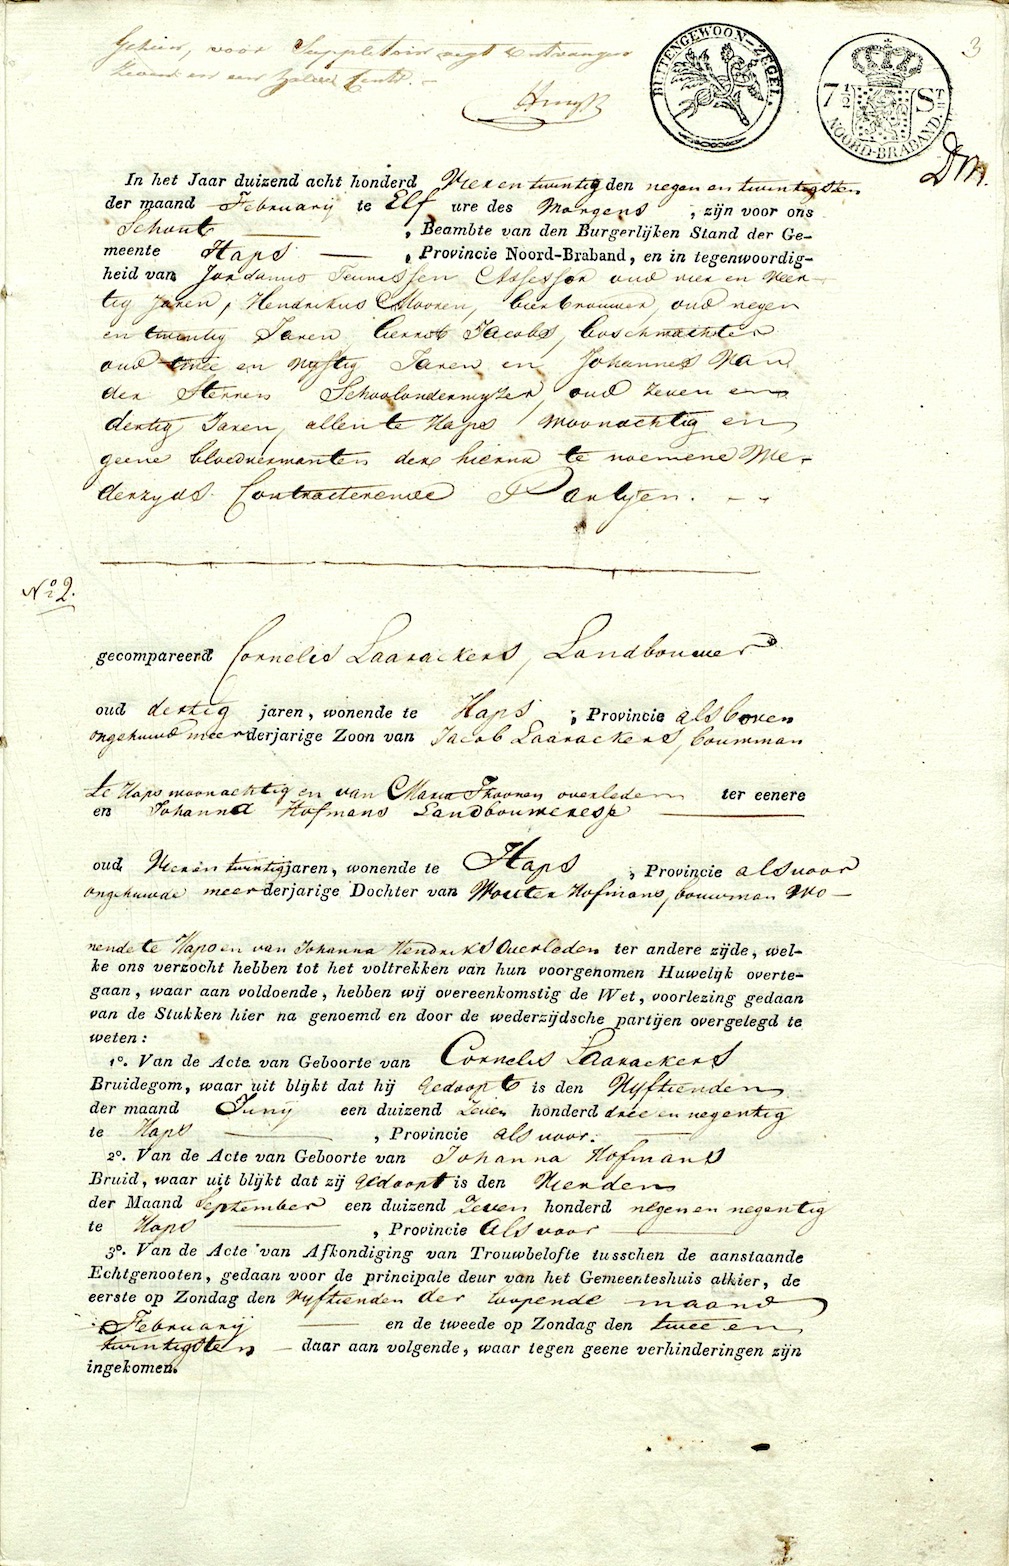 Gezien, voor Suppletoir regt ontvangen
zeven en een halve Cents. –
BUITENGEWOON-ZEGEL.
7 1/2 ST
NOORD-BRABAND.
3
DM.
In het Jaar duizend acht honderd Vier en twintig den negen en twintigsten
der maand Februarij te Elf ure des Morgens , zijn voor ons
Schout , Beambte van den Burgerlijken Stand der Ge-
meente Haps , Provincie Noord-Braband, en in tegenwoordig-
heid van Jordanus Teunissen Assessor oud vier en Veer-
tig Jaren, Hendrikus Mooren, bierbrouwer, oud negen
en twintig Jaren, Jacobs, boschwachter
oud twee en vyftig Jaren en Johannes Van
der Sterren Schoolonderwyzer, oud zeven en
dertig Jaren, allen te Haps woonachtig en
geene bloedverwanten der hierna te noemene We-
derzyds Contracterende Partyen.
No 2.
gecompareerd Cornelis Laarackers, Landbouwer
oud dertig jaren, wonende te Haps ; Provincie als boven
ongehuwd meerderjarige Zoon van Jacob Laarackers, bouwman
te Haps woonachtig en van Maria Thoonen overleden ter eenere
en Johanna Hofmans Landbouweresse
oud Vier en twintig jaren, wonende te Haps ; Provincie als voor
ongehuwde meerderjarige Dochter van Wouter Hofmans, bouwman wo-
nende te Haps en van Johanna Hendriks Overleden ter andere zijde, wel-
ke ons verzocht hebben tot het voltrekken van hun voorgenomen Huwelijk overte-
gaan, waar aan voldoende, hebben wij overeenkomstig de Wet, voorlezing gedaan
van de Stukken hier na genoemd en door de wederzijdsche partijen overgelegd te
weten:
1o. Van de Acte van Geboorte van Cornelis Laarackers
Bruidegom, waar uit blijkt dat hij Gedoopt is den Vyftienden
der maand Junij een duizend Zeven honderd drie en negentig
te Haps , Provincie als voor.
2o. Van de Acte van Geboorte van Johanna Hofmans
Bruid, waar uit blijkt dat zij Gedoopt is den Vierden
der Maand September een duizend Zeven honderd negen en negentig
te Haps , Provincie Als voor
3o. Van de Acte van Afkondiging van Trouwbelofte tusschen de aanstaande
Echtgenooten, gedaan voor de principale deur van het Gemeenteshuis alhier, de
eerste op Zondag den Vyftienden der loopende maand
Februarij en de tweede op Zondag den twee en
twintigsten daar aan volgende, waar tegen geene verhinderingen zijn
ingekomen.